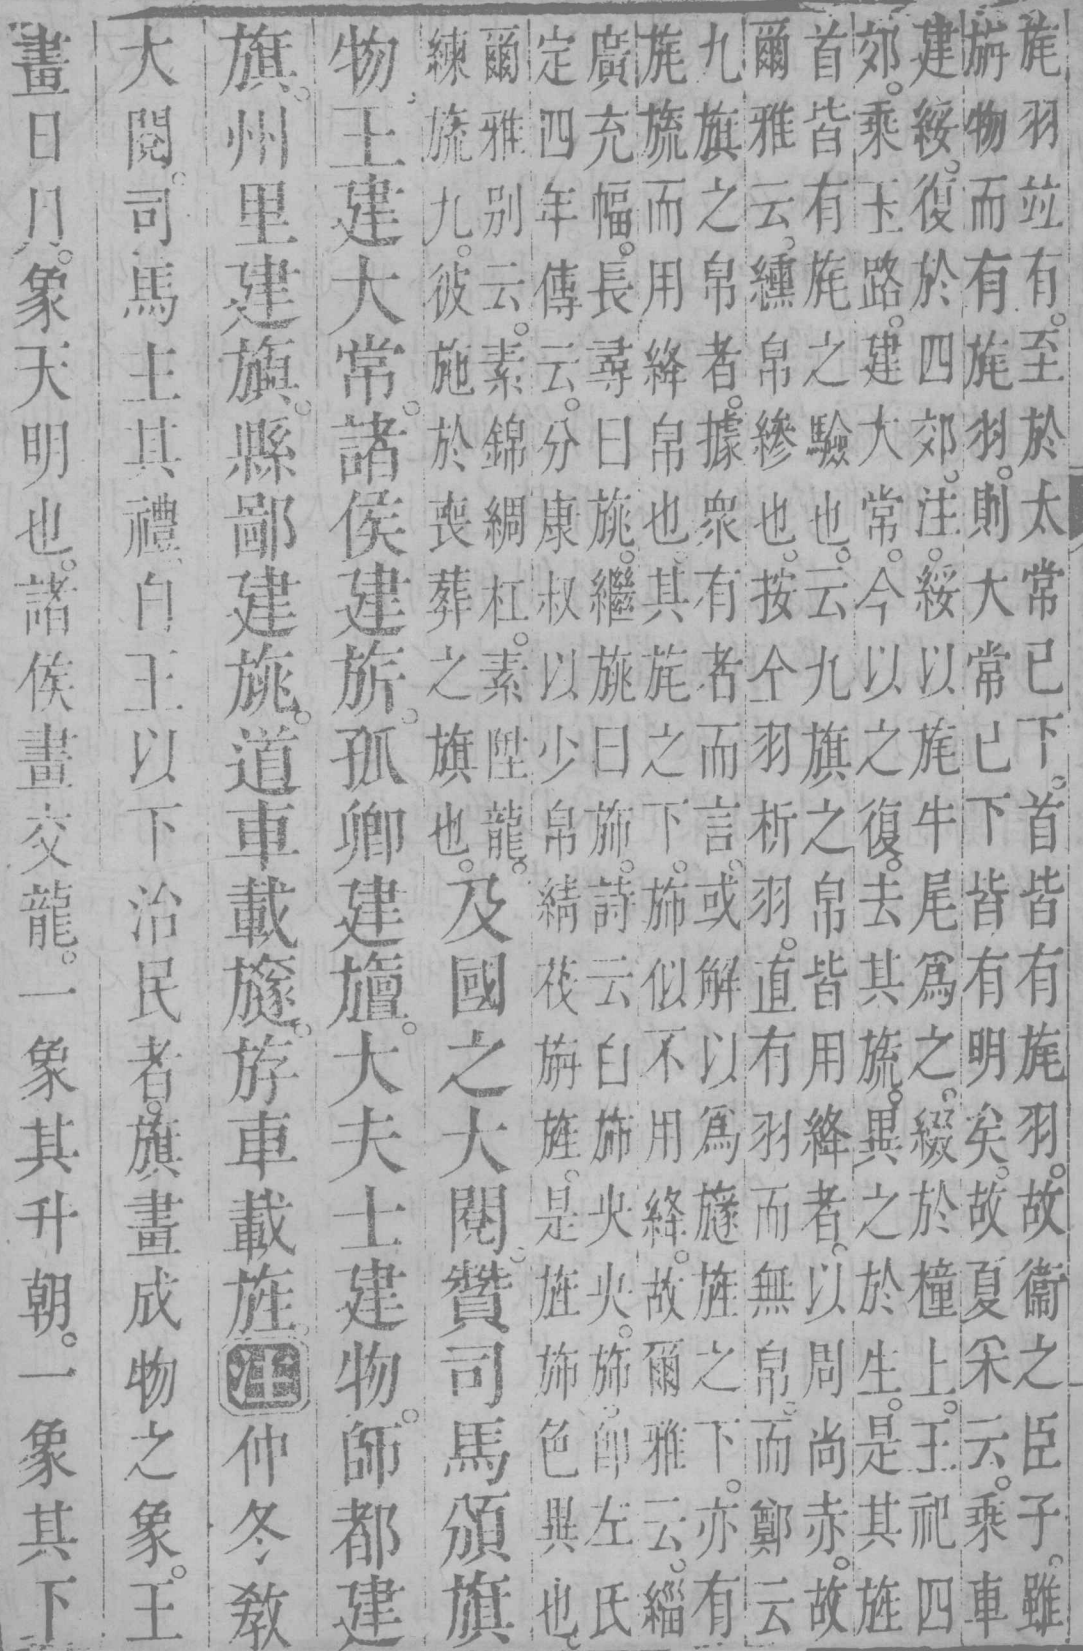 旄羽竝有。至於太常已下。首皆有旄羽。故衞之臣子。雖
旃物而有旄羽。則大常已下皆有明矣。故夏采云。乘車
建綏。復於四郊。注。綏以旄牛尾爲之。綴於橦上。王祀四
郊。乘玉路。建大常。今以之復。去其旒。異之於生。是其旌
首皆有旄之驗也。云九旗之帛皆用絳者。以周尚赤。故
爾雅云。纁帛縿也。按仝羽析羽。直有羽而無帛。而鄭云
九旗之帛者。據衆有者而言。或解以爲旞旌之下。亦有
旄旒而用絳帛也。其旄之下。旆似不用絳。故爾雅云。緇
廣充幅。長尋曰旐。繼旐曰旆。詩云白旆央央。旆卽左氏
定四年傳云。分康叔以少帛綪茷旃旌。是旌旆色異也
爾雅别云。素錦綢杠。素陞龍。
練旒九。彼施於喪葬之旗也。
及國之大閱。贊司馬頒旗
物。王建大常。諸侯建旂。孤卿建旜。大夫士建物。師都建
旗。州里建旟。縣鄙建旐。道車載旞。斿車載旌。注仲冬敎
大閱。司馬主其禮。自王以下治民者。旗畫成物之象。王
畫日月。象天明也。諸侯畫交龍。一象其升朝。一象其下